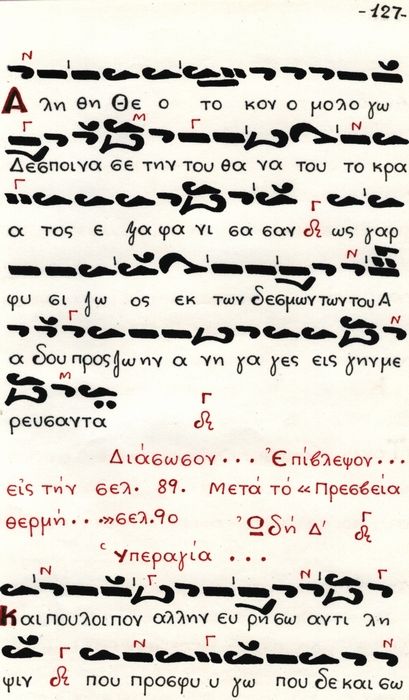 -127-
Α λη θη Θε ο το κον ο μολο γω
Δεσποινα σε την του θα να του το κρα
α τος ε ξα φα νι σα σαν δι ως γαρ
φυ σι ζω ος εκ των δεσμων των του Α
α δου προς ζω ην α νη γα γες εις γην με
ρευσαντα
Διάσωσον... Ἐπίβλεψον...
εἰς τήν σελ. 89. Μετά τό «Πρεσβεία
θερμή...» σελ. 90 Ὠδή Δ΄
Ὑπεραγία ...
Και που λοι πον αλλην ευ ρη σω αντι λη
ψιν που προσφυ υ γω που δε και σω